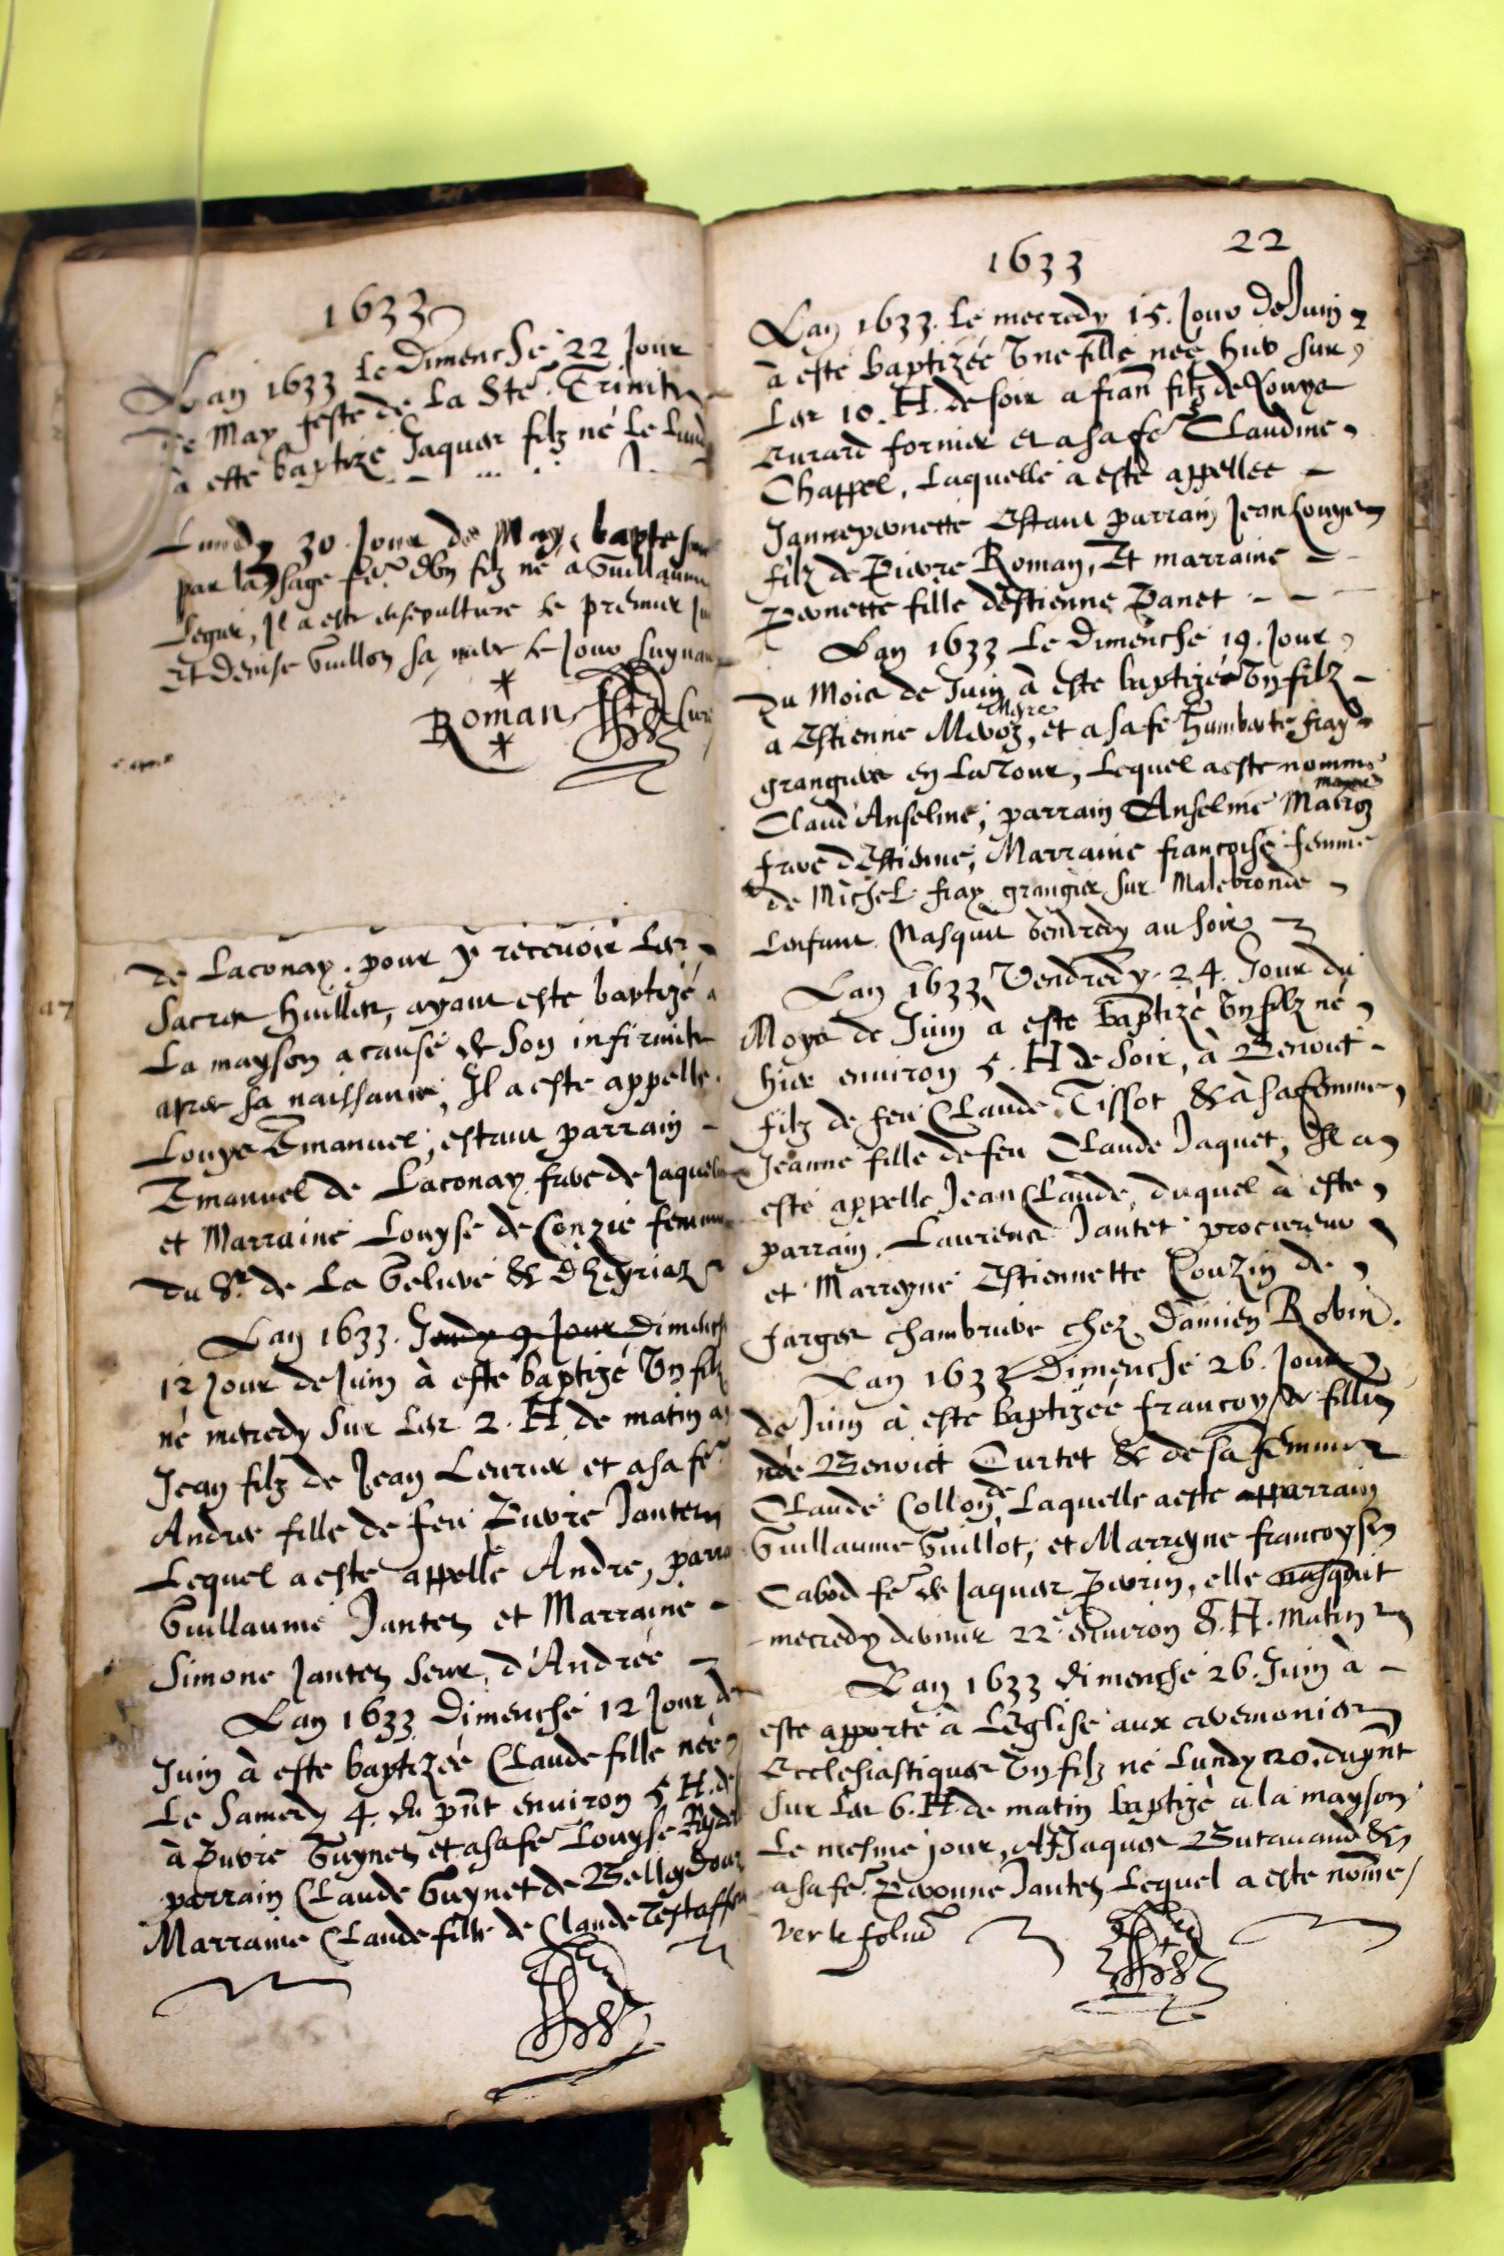 1633
Lan 1633 Le Dimenche 22 Jour
De May feste de La Ste Trinit
à este baptizé Jaques filz né Le Lund
Lundy 30 Jour de May, bapte
par la sage fe. dun filz né a Guillaume
Legier, Il a este ensepulture le premier
Et Denise Guillon sa mere le Jour suyuant
Roman
de Laconay pour y receuoir Les
Sacres huilles, ayant este baptizé a
La mayson a cause de son infirmite
apres sa naissance, Il a este appelle
Louys Emanuel, estant parrain
Emanuel de Laconay frere de Jaques
et Marraine Louyse de Conzie femme
du Sr. de La Veliere & Dheyriaz
Lan 1633. Jeudy 9 Jour Dimench
12 Jour de Juin à este baptizé Un filz
né mecredy sur Les 2. H. de matin a
Jean filz de Jean Leurier et a sa fe
Andree fille de feu Pierre Jantet
Lequel a este appelle André, parra
Guillaume Jantet et Marraine
Simone Jantet seur d'Andrée
Lan 1633 Dimenche 12 Jour de
Juin à este baptizée Claude fille née
Le Samedy 4. du pnt enuiron 5 H. de
à Pierre Guynet et a sa fe Louyse
parrain Claude Guynet de Bellydoux
Marraine Claude fille de Claude
1633
22
Lan 1633. Le mecredy 15. Jour de Juin
à este baptizée Une fille née hier sur
Les 10. H. de soir a fran filz de Louys
Curard fornier et a sa fe Claudine
Chappel, Laquelle a este appellee
Jannepernette Estant parrain Jean Louys
filz de Pierre Roman, Et marraine
Pernette fille dEstienne Panet
Lan 1633 Le Dimenche 19. Jour
Du Mois de Juin à este baptizé Un filz
a Estienne, et a sa fe Humberte fray
grangier en La Tour, Lequel a este nomme
Claud'Anselme, parrain Anselme
frere dEstienne, Marraine francoise femme
de Michel fray grangier sur Malebronde
Lenfant Nasquit Vendredy au soir
Lan 1633 Vendredy 24. Jour du
Moys de Juin à este baptizé Un filz né
hier enuiron 5. H de soir, à Benoict
filz de feu Claude Tissot & à sa femme
Jeanne fille de feu Claude Jaquet, Il a
esté appelle Jean Claude, duquel à este
parrain Laurens Jantet procureur
et Marreyne Estiennette Couzin de
farges chambriere chez Damien Robin.
Lan 1633 Dimenche 26. Jour
de Juin à este baptizée francoyse fille
née Benoict Curtet & de sa femme
Claude Collon, Laquelle a este apparrain
Guillaume Guillot, et Marreyne francoyse
Cabod fe de Jaques Perrin, elle nasquit
mecredy dernier 22 enuiron 8. H. Matin
Lan 1633 dimenche 26. Juin à
este apporté à Leglise aux ceremonies
Ecclesiastiques Un filz né Lundy 20. du pnt
sur Les 6. H. de matin baptizé a la mayson
Le mesme jour, A Jaques Butauand &
a sa fe Peronne Jantet Lequel a este nomme